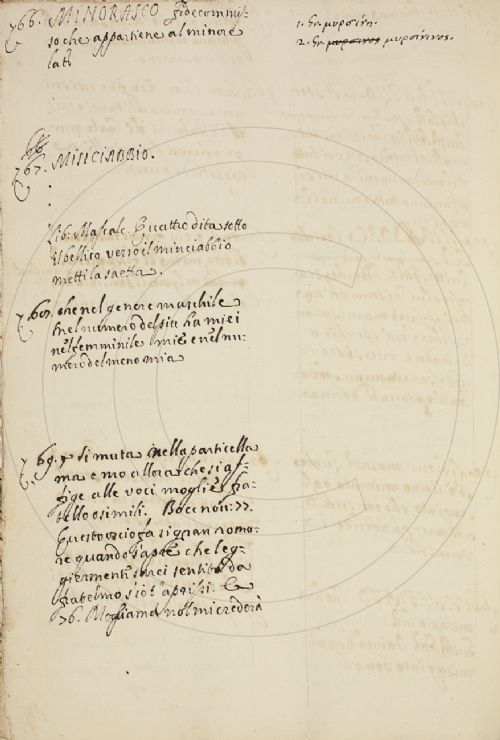 766. MINORASCO Fidecommis-
so che appartiene al minore
lati
1. Gr. μυρσίνη.
2. Gr. μυρσινος μυρσίνινος.
767. MINCIABBIO.
Lib. Mascalc. Quattro dita sotto
il bellico verso il minciabbio
metti la saetta.
che nel genere maschile
nel numero del più ha miei
nel femminile mie e nel nu-
mero del meno mia
769. si muta nella particella
ma e mo allora che si af-
figge alle voci moglie, fra-
tello o simili. Bocc. nov. 77.
Questo uscio fa sì gran romo-
re quando s'apre che leg-
giermente sarei sentita da
fratelmo s'io t'aprissi. E
76. Mogliama nol mi crederà